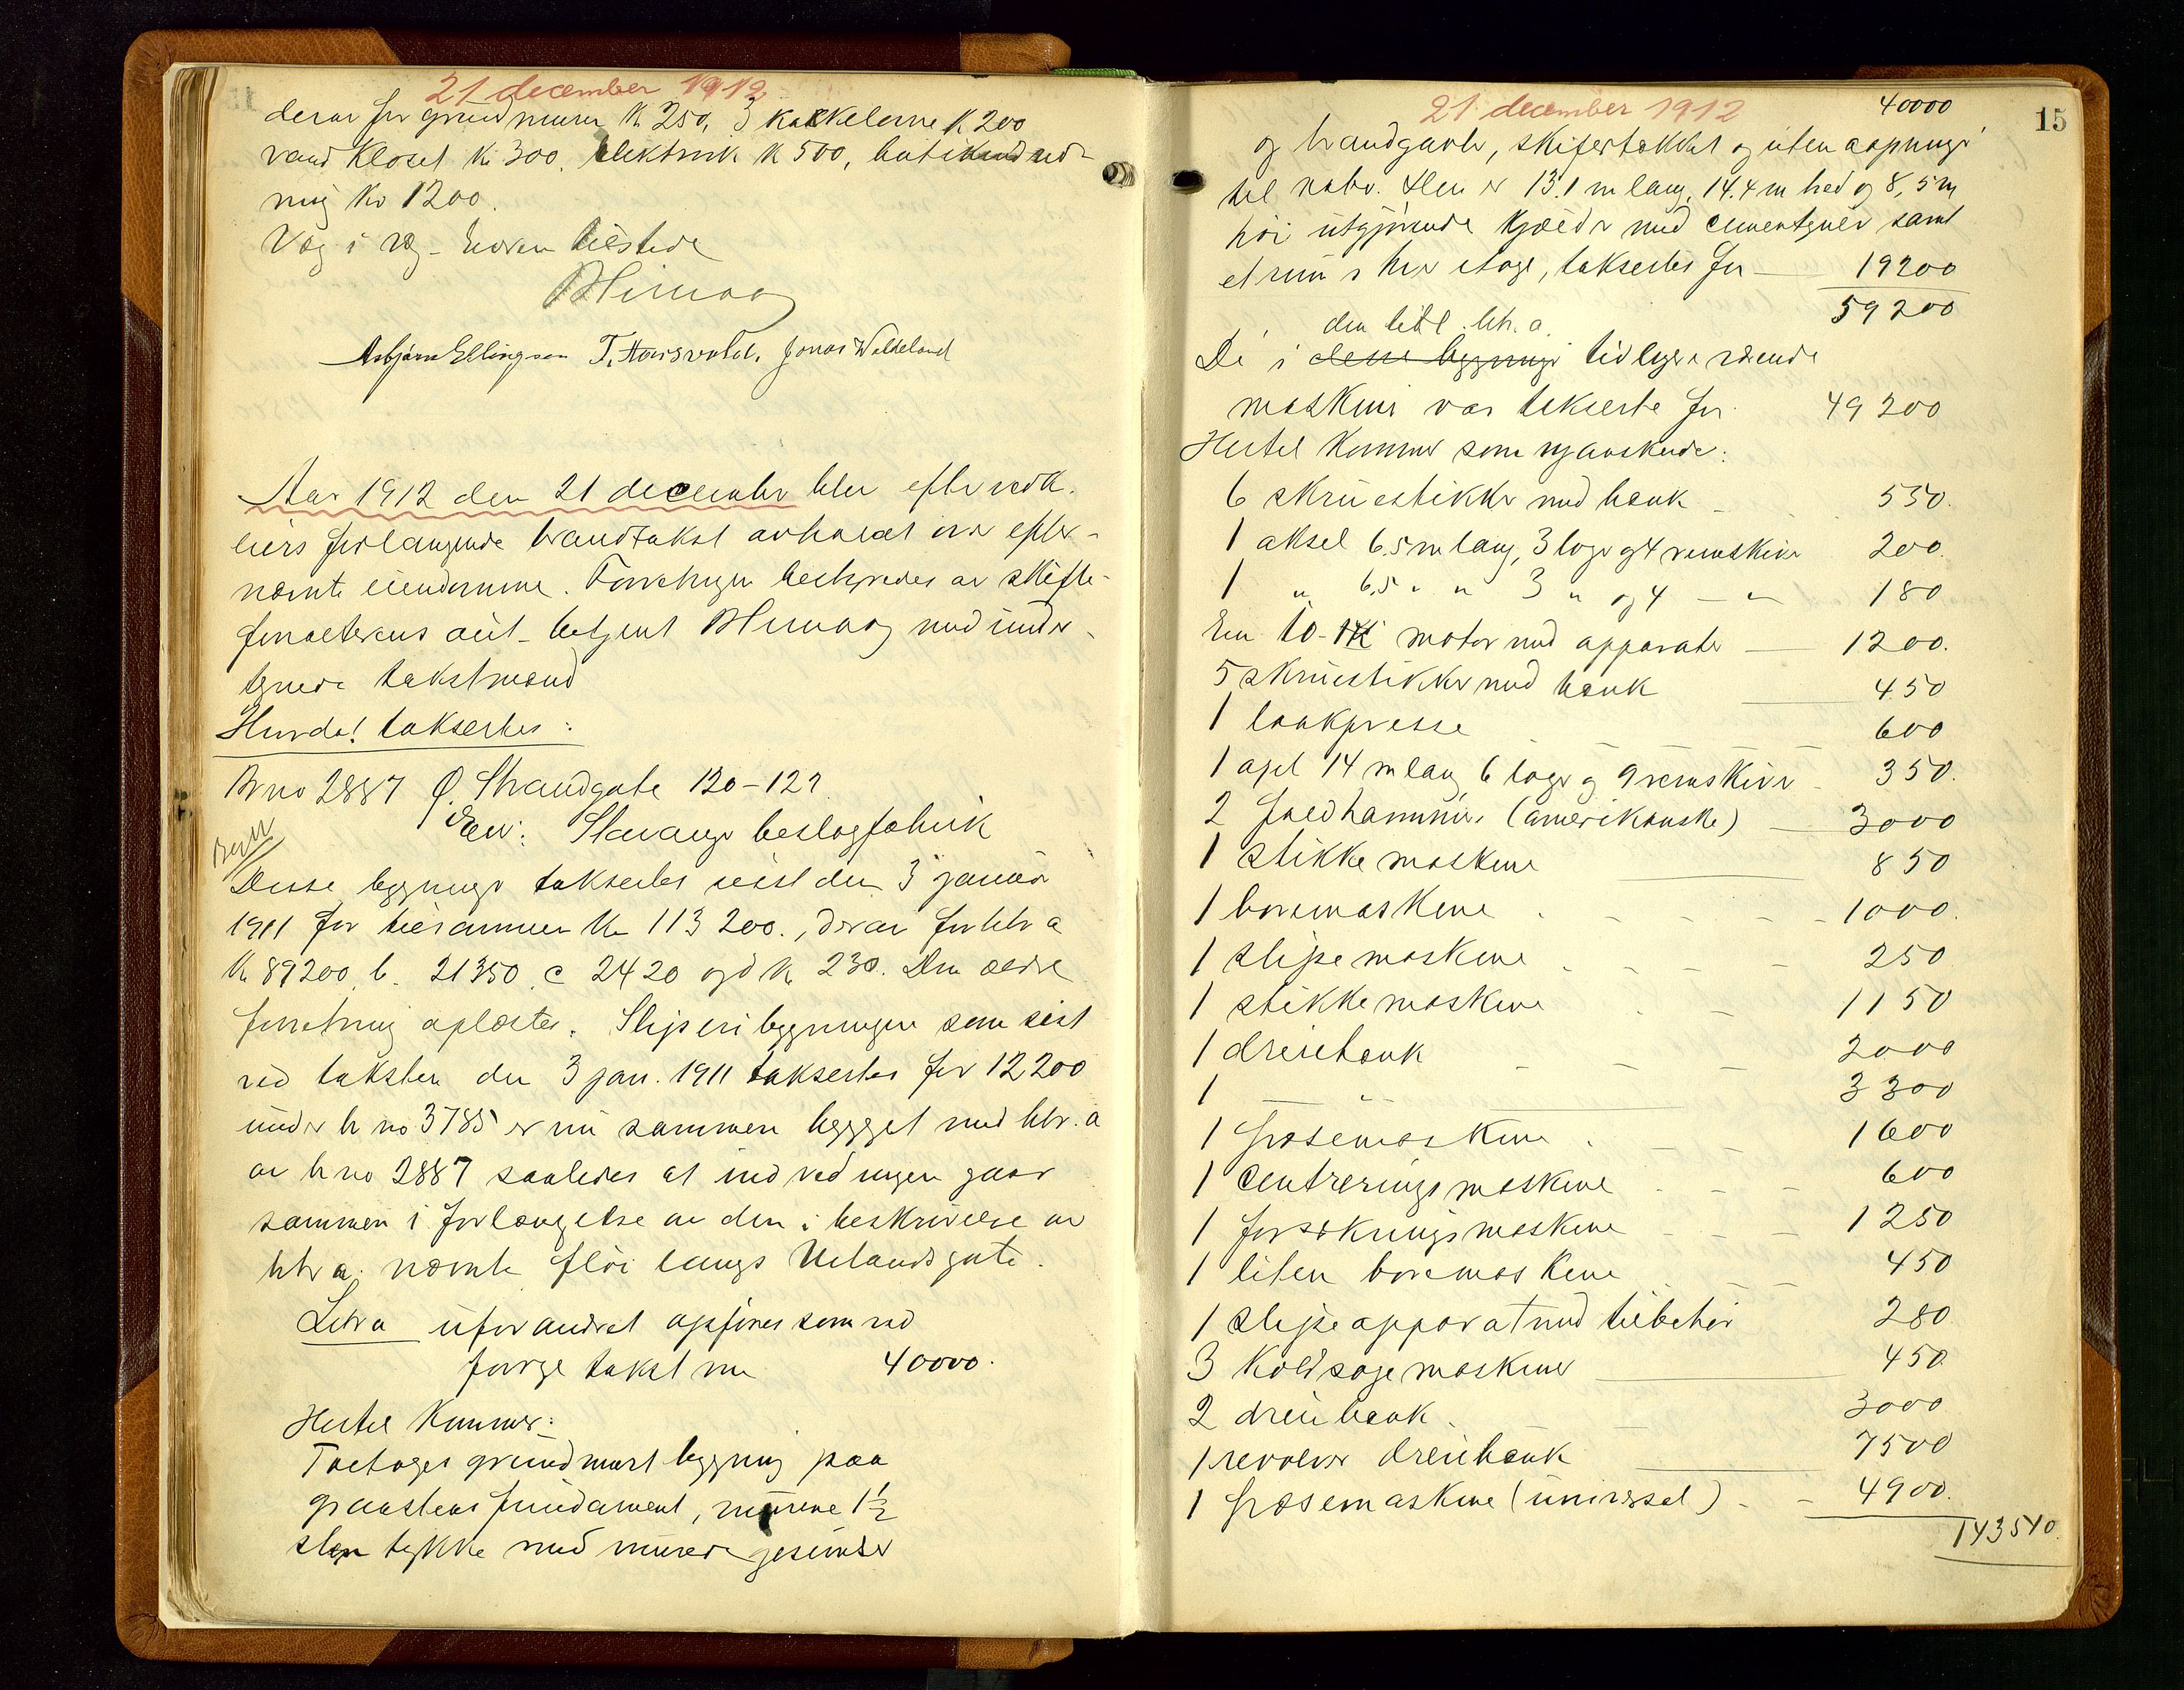 21 december 1912
derav for grundmuren K 250, 3 kakkelovne K 200
vand Kloset Kr 300. Elektrisk K 500, butikind red-
ning Kr 1200.
Asbjørn Ellingsen T. Jonas Waldeland
Aar 1912 den 21 december blev efter vedk.
eiers forlangende brandtakst avholdt over efter-
nævnte eiendomme. Forretningen bestyredes av skifte-
forvalterens aut. betjent med under-
tegnede takstmænd
Hvorda! taksertes:
Br no 2887 Ø. Strandgate 120-122
Eier: Stavanger beslagfabrik
Disse bygninger taksertes sidst den 3 januar
1911 for tilsammen Kr 113 200., derav for litr a
Kr 89200, b. 21350, c 2420 og d Kr 230. Den ældre
forretning oplæstes. Sliperibygningen som sist
ved taksten den 3 jan. 1911 taksertes for 12200
under br no 3785 er nu sammen bygget med litr. a
av br no 2887 saaledes at indredningen gaar
sammen i forlængelse av den i beskrivelse av
litr a. nævnte fløi langs Uelandsgate.
Litr a uforandret opføres som ved
forrige takst m 40000.
Hertil Kommer:
Toetages grundmurt bygning paa
graastens fundament, murene 1½
sten tykke med murede gesimser
21 december 1912 40000
15
og brandgavle, skifertækket og uten aapninger
til nabo. Den er 13.1 m lang, 14.4 m bred og 8,5 m
høi utgjørende kjælder med cementgulv samt
et rum i hver etage, taksertes for 19200
59200
den til litr. a
De i desse bygninger tidligere værende
maskiner var takserte for 49 200
Hertil kommer som nyanskede:
6 skruestikker med bænk 550.
1 aksel 6.5 m lang, 3 lager og 4 remskiver 200.
1 " 6,5 " " 3 " og 4 — " 180
En 10-HK motor med apparater 1200.
5 skruestikker med bænk 450
1 laakpresse 600
1 axel 14 m lang 6 lager og 9 remskiver 350.
2 faldhammere (amerikanske) 3000
1 stikkemaskine 850
1 boremaskine 1000.
1 slipemaskine 250
1 stikkemaskine 1150
1 dreiebænk 2000
1 — " — 3300
1 fræsemaskine 1600
1 centreringsmaskine 600
1 forsøkningsmaskine 1250
1 liten boremaskine 450
1 slipeapparat med tilbehør 280
3 koldsagemaskiner 450
2 dreiebænk 3000
1 revolver dreiebænk 7500
1 fræsemaskine (universal) 4900.
143540.